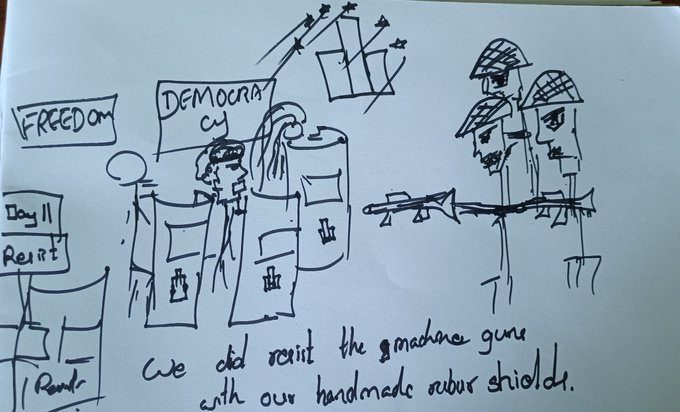 FREEDOM
DEMOCRA
CY
Day 11
Resist
we did resist the machine guns
with our handmade rubur shields.